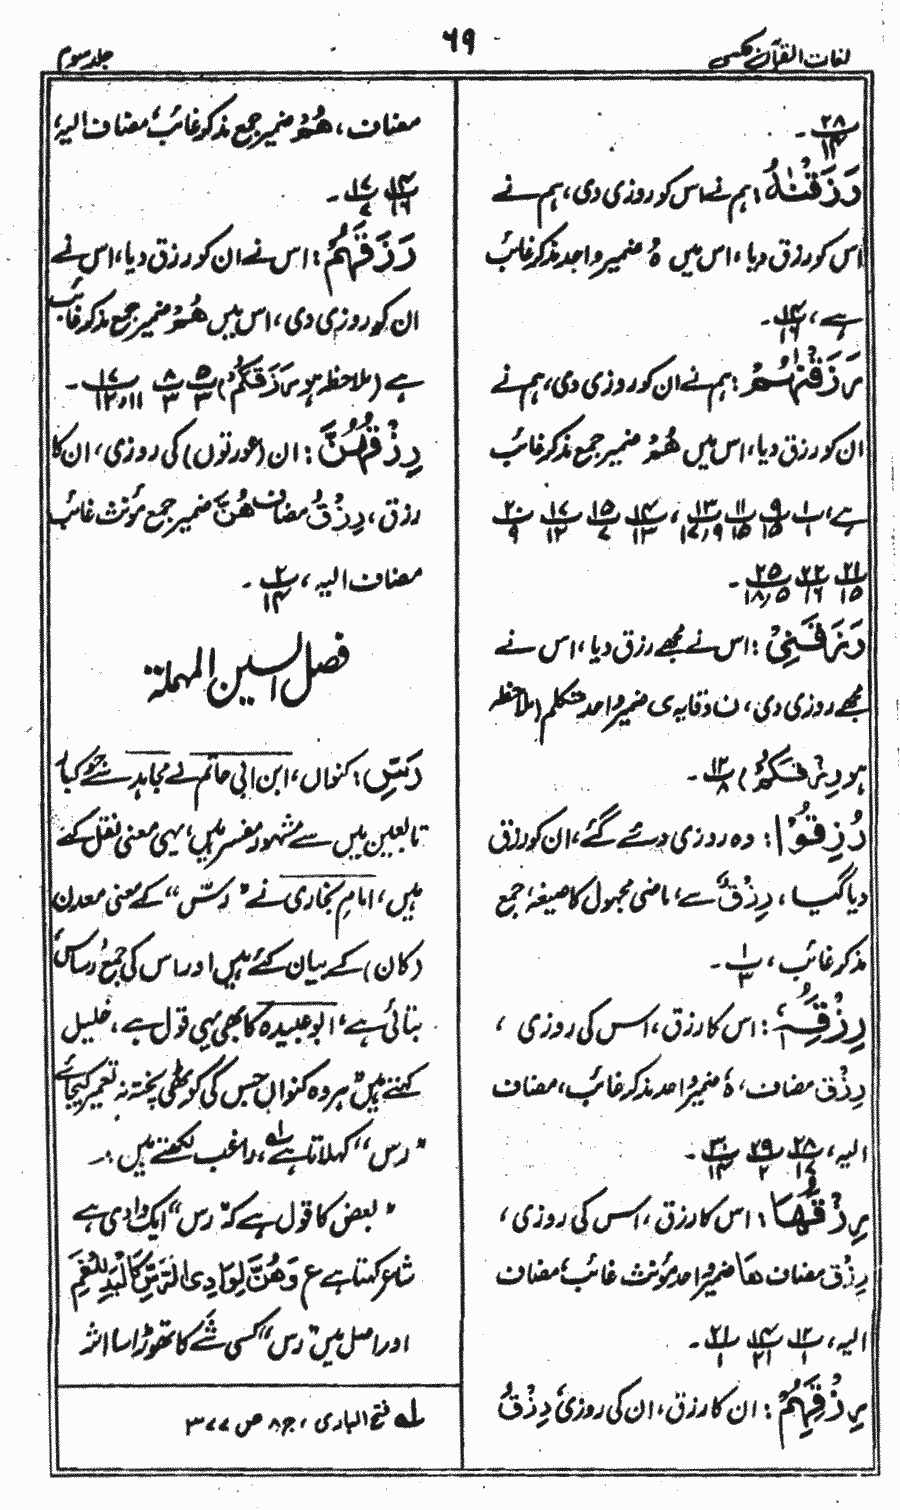 لغات القرآن عکسی
۶۹
جلد سوم
۲۸/۱۴ ـ
رَزَقْنٰهُ : ہم نے اس کو روزی دی، ہم نے
اس کو رزق دیا، اس میں ہٗ ضمیر واحد مذکر غائب
ہے، ۱۴/۱۶ ـ
رَزَقْنٰہُمْ : ہم نے ان کو روزی دی، ہم نے
ان کو رزق دیا، اس میں ھُمْ ضمیر جمع مذکر غائب
ہے، ۱/۱ ۹/۱۵ ۱۱/۱۵ ۱۳/۱۷٫۹، ۱۴/۱۳ ۱۵/۷ ۱۷/۱۲ ۲۰/۹
۲۱/۱۵ ۲۲/۱۶ ۲۵/۱۸٫۵ ـ
رَزَقَنِیْ : اس نے مجھے رزق دیا، اس نے
مجھے روزی دی، ن وقایہ ی ضمیر واحد متکلم (ملاحظہ
ہو رِزْقُکُمْ) ۱۲/۸ ـ
رُزِقُوْا : وہ روزی دئے گئے، ان کو رزق
دیا گیا، رِزْقٌ سے، ماضی مجہول کا صیغہ، جمع
مذکر غائب، ۱/۳ ـ
رِزْقِہٖ : اس کا رزق، اس کی روزی،
رِزْق مضاف، ہٗ ضمیر واحد مذکر غائب، مضاف
الیہ، ۲۸/۱۷ ۲۹/۲ ۳۰/۱۴ ـ
رِزْقُھَا : اس کا رزق، اس کی روزی،
رِزْقُ مضاف ھَا ضمیر واحد مؤنث غائب، مضاف
الیہ، ۱۲/۱ ۱۴/۲۱ ۲۱/۱ ـ
رِزْقِہِمْ : ان کا رزق، ان کی روزی، رِزْقُ
مضاف، ھُمْ ضمیر جمع مذکر غائب، مضاف الیہ،
۱۴/۱۶ ۱۷/۷ ـ
رَزَقَہُمْ : اس نے ان کو رزق دیا، اس نے
ان کو روزی دی، اس میں ھُمْ ضمیر جمع مذکر غائب
ہے (ملاحظہ ہو رَزَقَکُمْ) ۵/۳ ۸/۳ ۱۷/۱۲٫۱۱ ـ
رِزْقُہُنَّ : ان (عورتوں) کی روزی، ان کا
رزق، رِزْقُ مضاف ھُنَّ ضمیر جمع مؤنث غائب
مضاف الیہ، ۲/۱۴ ـ
فصل السین المہملۃ
رَسّ : کنواں، ابن ابی حاتم نے مجاہد سے جو کبار
تابعین میں سے مشہور مفسر ہیں، یہی معنی نقل کئے
ہیں، امام بخاری نے "رَسّ" کے معنی معدن
(کان) کے بیان کئے ہیں اور اس کی جمع رساس
بتائی ہے، ابو عبیدہ کا بھی یہی قول ہے، خلیل
کہتے ہیں "ہر وہ کنواں جس کی کوٹھی پختہ نہ تعمیر کیجائے
"رس" کہلاتا ہے لہ، راغب لکھتے ہیں :ـ
"بعض کا قول ہے کہ "رس" ایک وادی ہے
شاعر کہتا ہے ع وَھُنَّ لِوَادِی الرَّسِّ کَالْیَدِ لِلْفَمِ
اور اصل میں "رس" کسی شے کا تھوڑا سا اثر
لہ فتح الباری، ج ۸ ص ۳۷۷